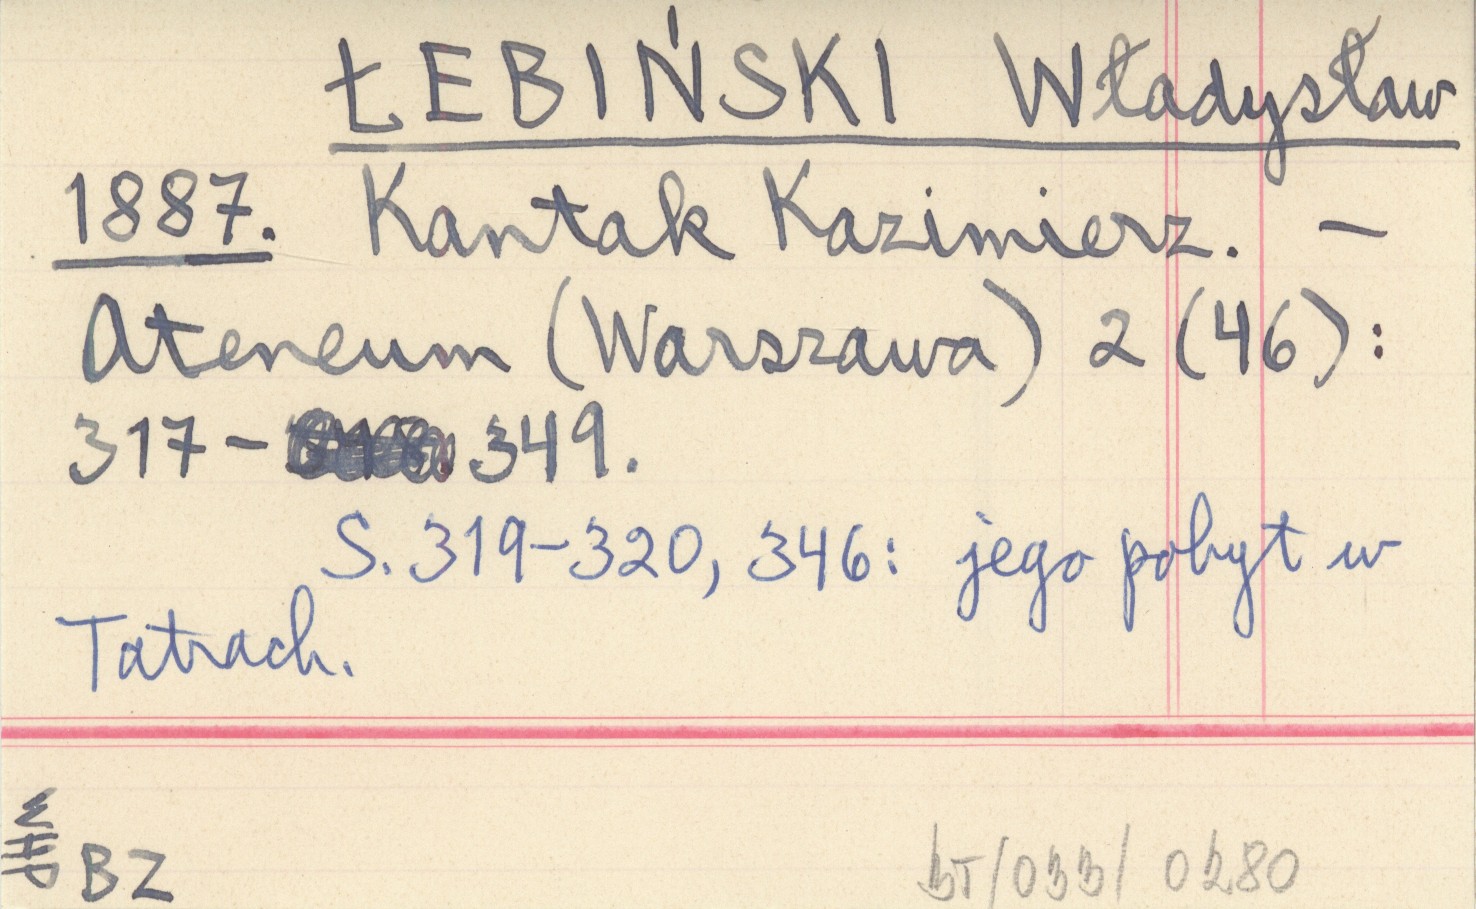 ŁEBIŃSKI Władysław
1887. Kantak Kazimierz. –
Ateneum (Warszawa) 2 (46):
317– 349.
S. 319–320, 346: jego pobyt w
Tatrach.
BZ